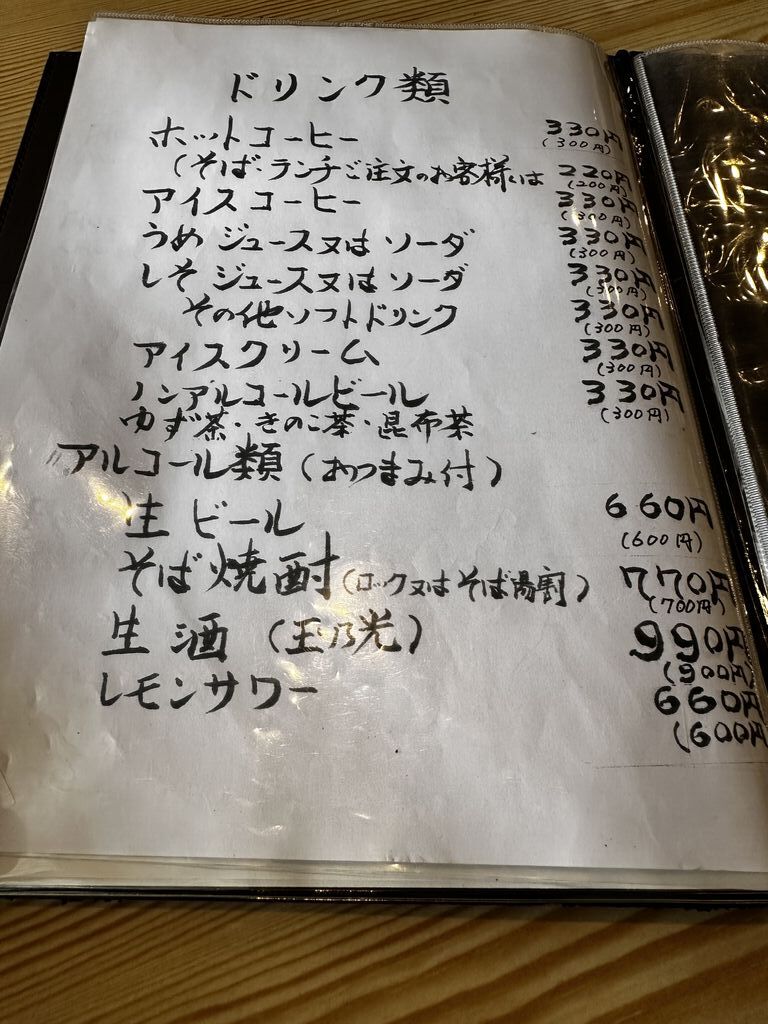 ドリンク類
ホットコーヒー 330円
(300円)
(そば・ランチご注文のお客様は 220円
(200円)
アイスコーヒー 330円
(300円)
うめジュース又はソーダ 330円
(300円)
しそジュース又はソーダ 330円
(300円)
その他ソフトドリンク 330円
(300円)
アイスクリーム 330円
(300円)
ノンアルコールビール 330円
(300円)
ゆず茶・きのこ茶・昆布茶
アルコール類(おつまみ付)
生ビール 660円
(600円)
そば焼酎(ロック又はそば湯割) 770円
(700円)
生酒(玉乃光) 990円
(900円)
レモンサワー 660円
(600円